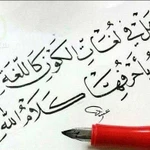 هل في لغاتِ الكونِ كاللغة
بأحرفِها كلامُ اللهِ